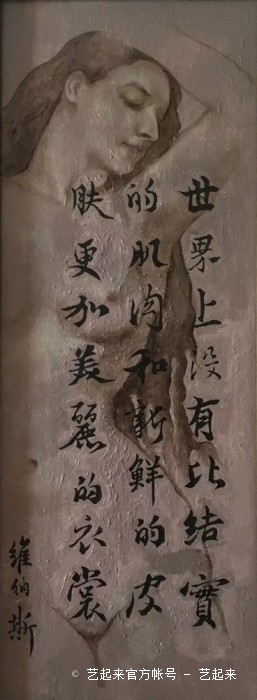 世界上没有比結實
的肌肉和新鮮的皮
肤更加美麗的衣裳
維纳斯
© 艺起来官方帐号 - 艺起来